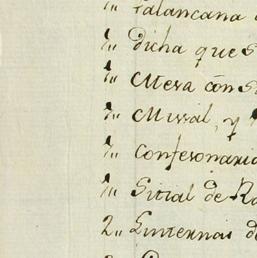 1,, Palancana
1,, dicha que s
1,, Mesa con s
1,, Missal, y
1,, Confesonari
1,, Sitial de Ra
2,, Linternas de